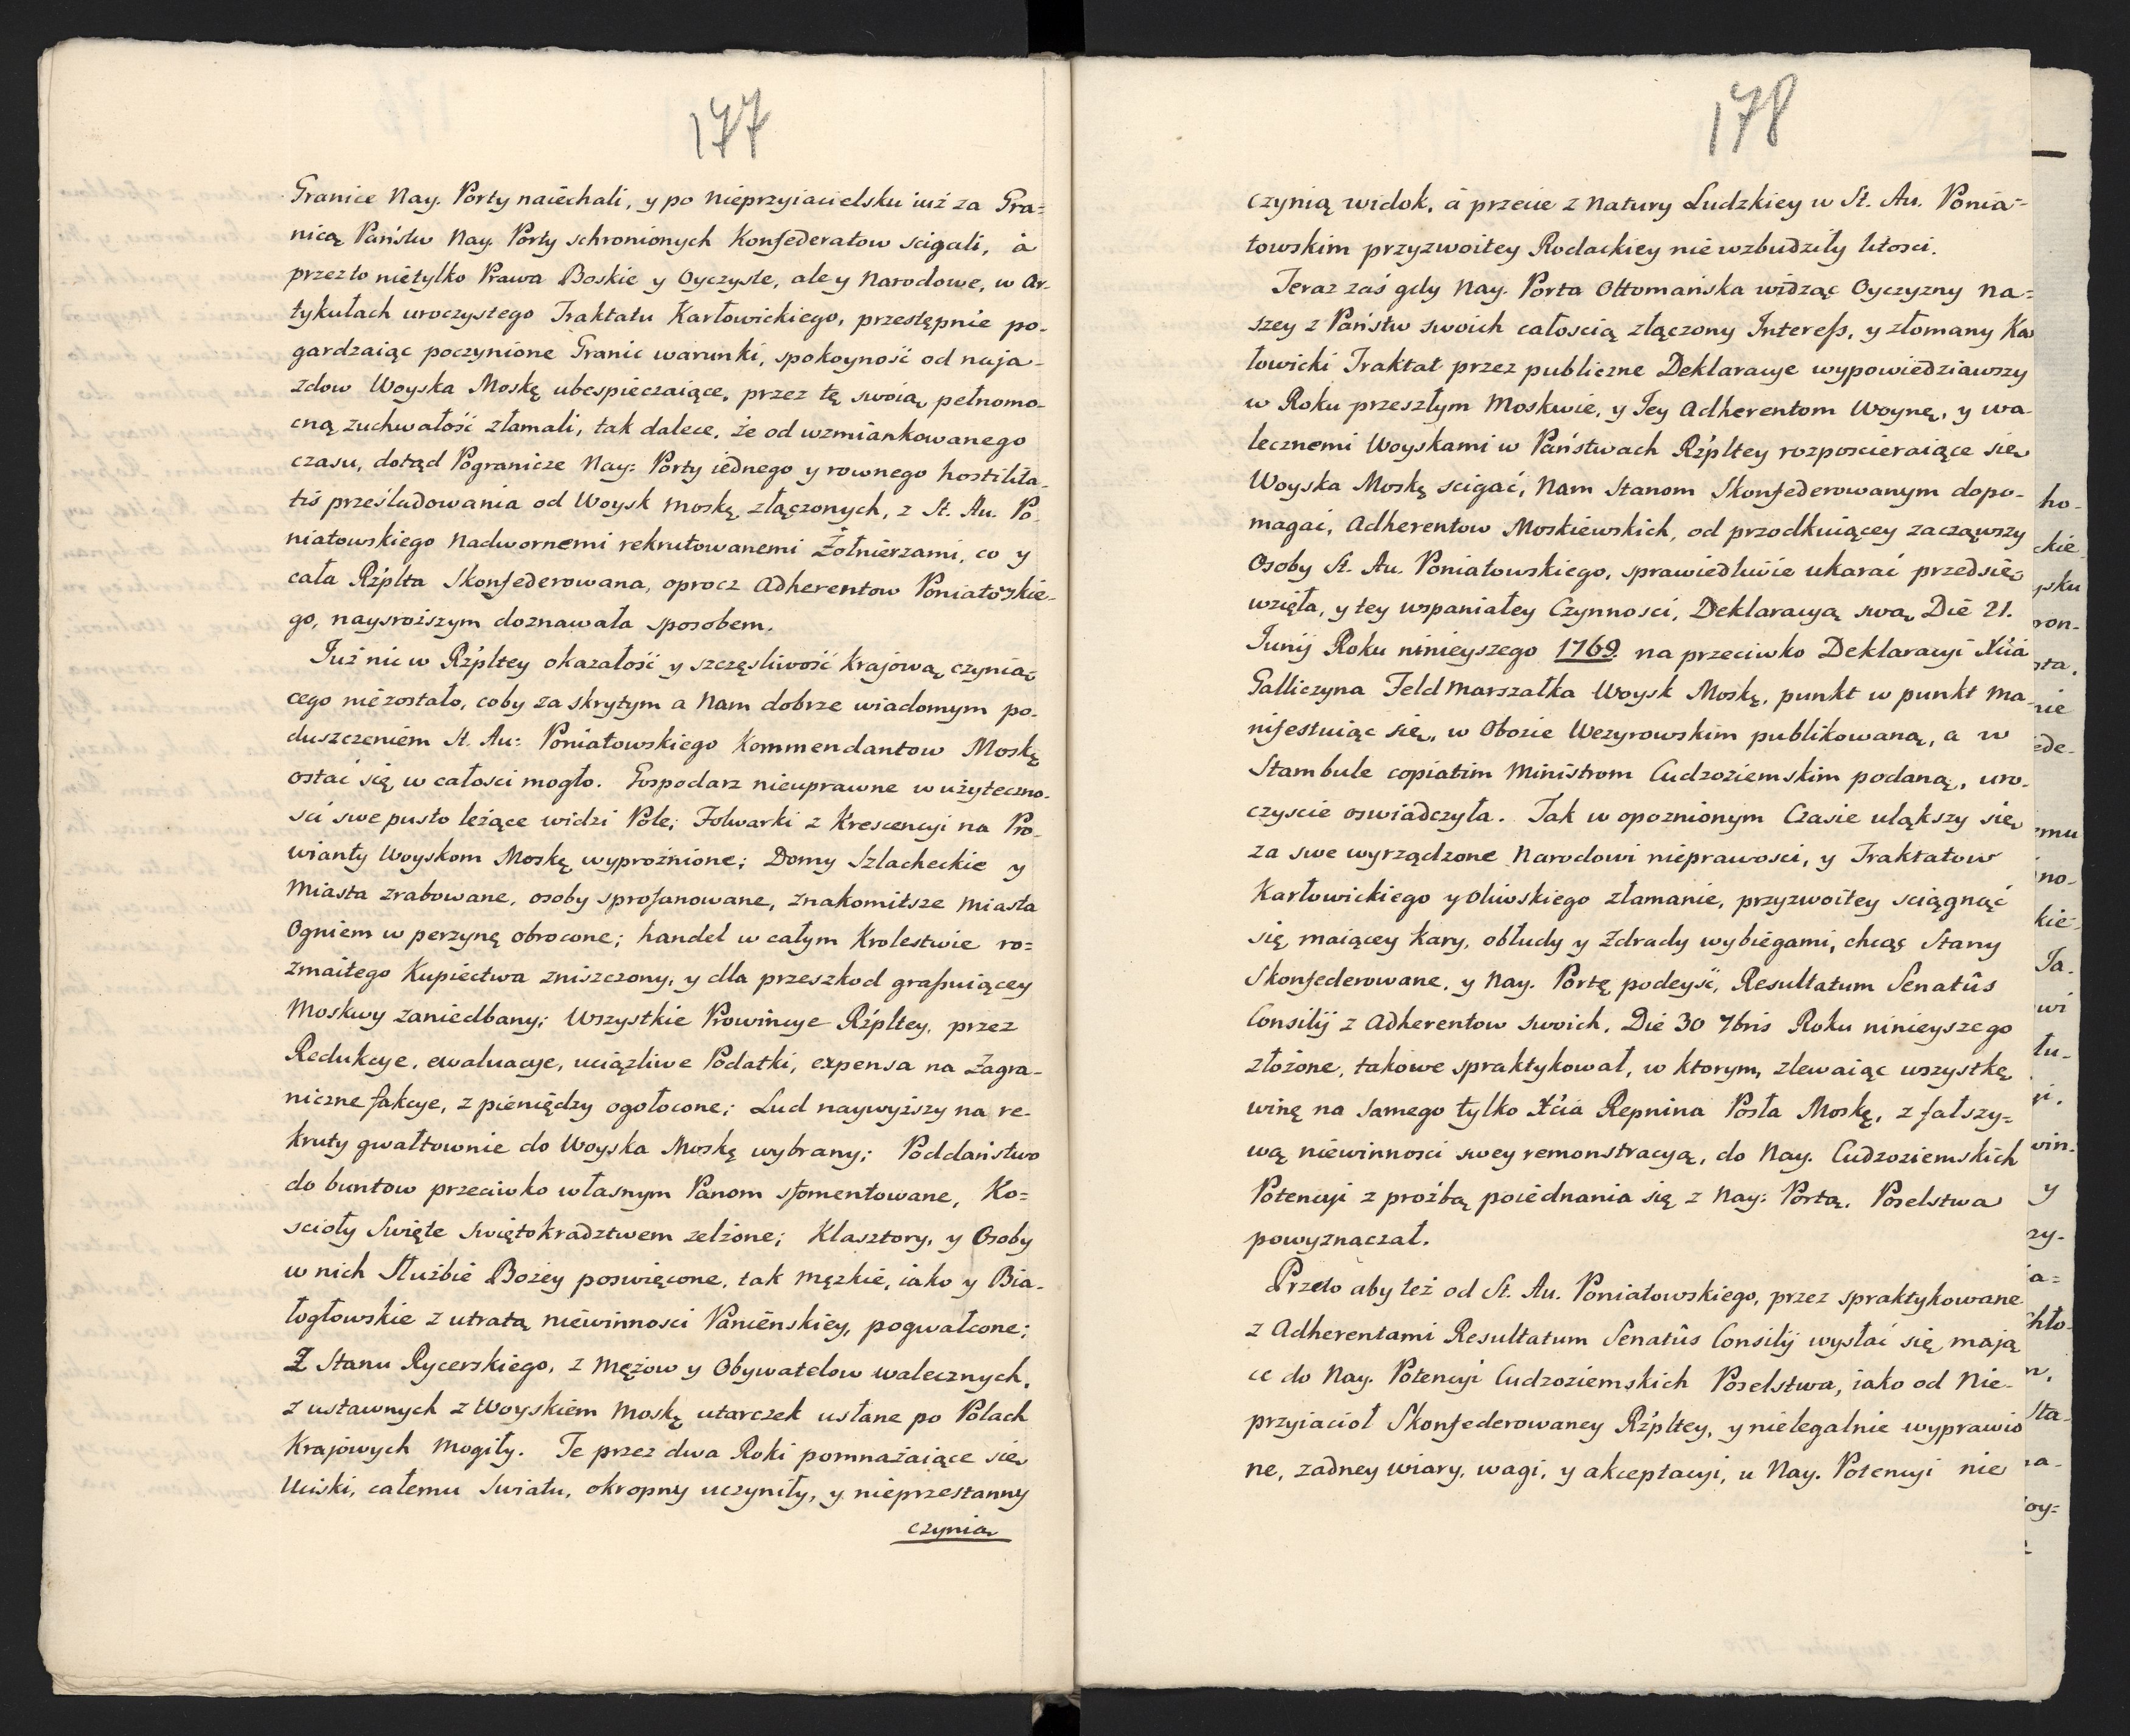 177
Granice Nay. Porty naiechali, y po nieprzyiacielsku iuż za Gra=
nicą Państw Nay. Porty schronionych Konfederatow scigali, à
przezto nietylko Prawa Boskie y Oyczyste, ale y Narodowe, w Ar-
tykułach uroczystego Traktatu Karłowickiego, przestępnie po-
gardzaiąc poczynione Granic warunki, spokoyność od naja-
zdow Woyska Moskę ubespieczaiące, przez tę swoią pełnomo-
cną zuchwałość złamali, tak dalece, że od wzmiankowanego
czasu, dotąd Pogranicze Nay: Porty iednego y rownego hostilita-
tis prześladowania od Woysk moskę, złączonych, z St. Au. Po-
niatowskiego Nadwornemi rekrutowanemi Żołnierzami, co y
cała Rżplta Skonfederowana, oprocz Adherentow Poniatoskie-
go, naysroższym doznawała sposobem.
Już nic w Rżpltey okazałość y szczęsliwość Krajową czynią-
cego niezostało, coby za skrytym a Nam dobrze wiadomym po-
duszczeniem St. Au: Poniatowskiego Kommendantow Moskę
ostać się w całosci mogło. Gospodarz nieuprawne w użyteczno-
sci swe pusto leżące widzi Pole; Folwarki z Krescencyi na Pro-
wianty Woyskom Moskę wyprożnione; Domy Szlacheckie y
Miasta zrabowane, osoby sprofanowane, znakomitsze Miasta
Ogniem w perzynę obrocone; handel w całym Krolestwie ro=
zmaitego Kupiectwa zniszczony, y dla przeszkod graſsuiącey
Moskwy zaniedbany; Wszystkie Prowincye Rżpltey, przez
Redukcye, ewaluacye, uciążliwe Podatki, expensa na Zagra-
niczne fakcye, z pieniędzy ogołocone; Lud naywyższy na re-
kruty gwałtownie do Woyska Moskę wybrany; Poddaństwo
do buntow przeciwko własnym Panom sfomentowane, Ko=
scioły Swięte swiętokradztwem zelżone; Klasztory, y Osoby
w nich Służbie Bożey poswięcone, tak męzkie, iako y Bia-
łogłowskie z utratą niewinnosci Panienskiey, pogwałcone;
Z Stanu Rycerskiego, z mężow y Obywatelow walecznych,
z ustawnych z Woyskiem Moskę utarczek usłane po Polach
Krajowych Mogiły. Te przez dwa Roki pomnażaiące się
Uciski, całemu Swiatu, okropny uczyniły, y nieprzestanny
czynią
178
czynią widok, à przecie z Natury Ludzkiey w St. Au. Ponia=
towskim przyzwoitey Rodackiey niewzbudziły litosci.
Teraz zaś gdy Nay. Porta Ottomańska widząc Oyczyzny na=
szey z Państw swoich całoscią złączony Intereſs, y złomany Ka
łowicki Traktat przez publiczne Deklaracye wypowiedziawszy
w Roku przeszłym Moskwie, y Jey Adherentom Woynę, y wa-
lecznemi Woyskami w Państwach Rżpltey rozposcieraiące się
Woyska Moskę scigać, Nam Stanom Skonfederowanym dopo-
magać, Adherentow Moskiewskich, od przodkuiącey zacząwszy
Osoby St. Au. Poniatowskiego, sprawiedliwie ukarać przedsię
wzięła, y tey wspaniałey Czynnosci, Deklaracyą swą Die 21.
Junij Roku ninieyszego 1769. na przeciwko Deklaracyi Xcia
Galliczyna Feldmarszałka Woysk Moskę, punkt w punkt ma-
nifestuiąc się, w Obozie Wezyrowskim publikowaną, a w
Stambule copiatim Ministrom Cudzoziemskim podaną, uro-
czyscie oswiadczyła. Tak w opoznionym Czasie uląkszy się
za swe wyrządzone Narodowi nieprawosci, y Traktatow
Karłowickiego y Oliwskiego złamanie, przyzwoitey sciągnąć
się maiącey kary, obłudy y Zdrady wybiegami, chcąc Stany
Skonfederowane, y Nay. Portę podeyść, Resultatum Senatûs
Consilij z Adherentow swoich, Die 30 7bris Roku ninieyszego
złożone, takowe spraktykował, w ktorym, zlewaiąc wszystkę
winę na samego tylko Xcia Repnina Posła Moskę, z fałszy=
wą niewinnosci swey remonstracyą, do Nay. Cudzoziemskich
Potencyi z prożbą poiednania się z Nay: Portą, Poselstwa
powyznaczał.
Przeto aby też od St. Au. Poniatowskiego, przez spraktykowane
z Adherentami Resultatum Senatûs Consilij wysłać się mają
ce do Nay. Potencyi Cudzoziemskich Poselstwa, iako od Nie-
przyiacioł Skonfederowaney Rżpltey, y nielegalnie wyprawio
ne, zadney wiary, wagi, y akceptacyi, u Nay. Potencyi nie
ho-
ckie
ysku
ron-
sta,
nie
ede-
mu
no-
kie-
Ja-
wi
łu-
yi.
win-
y
zy-
a=
hło-
n,
sta-
na-
oy=